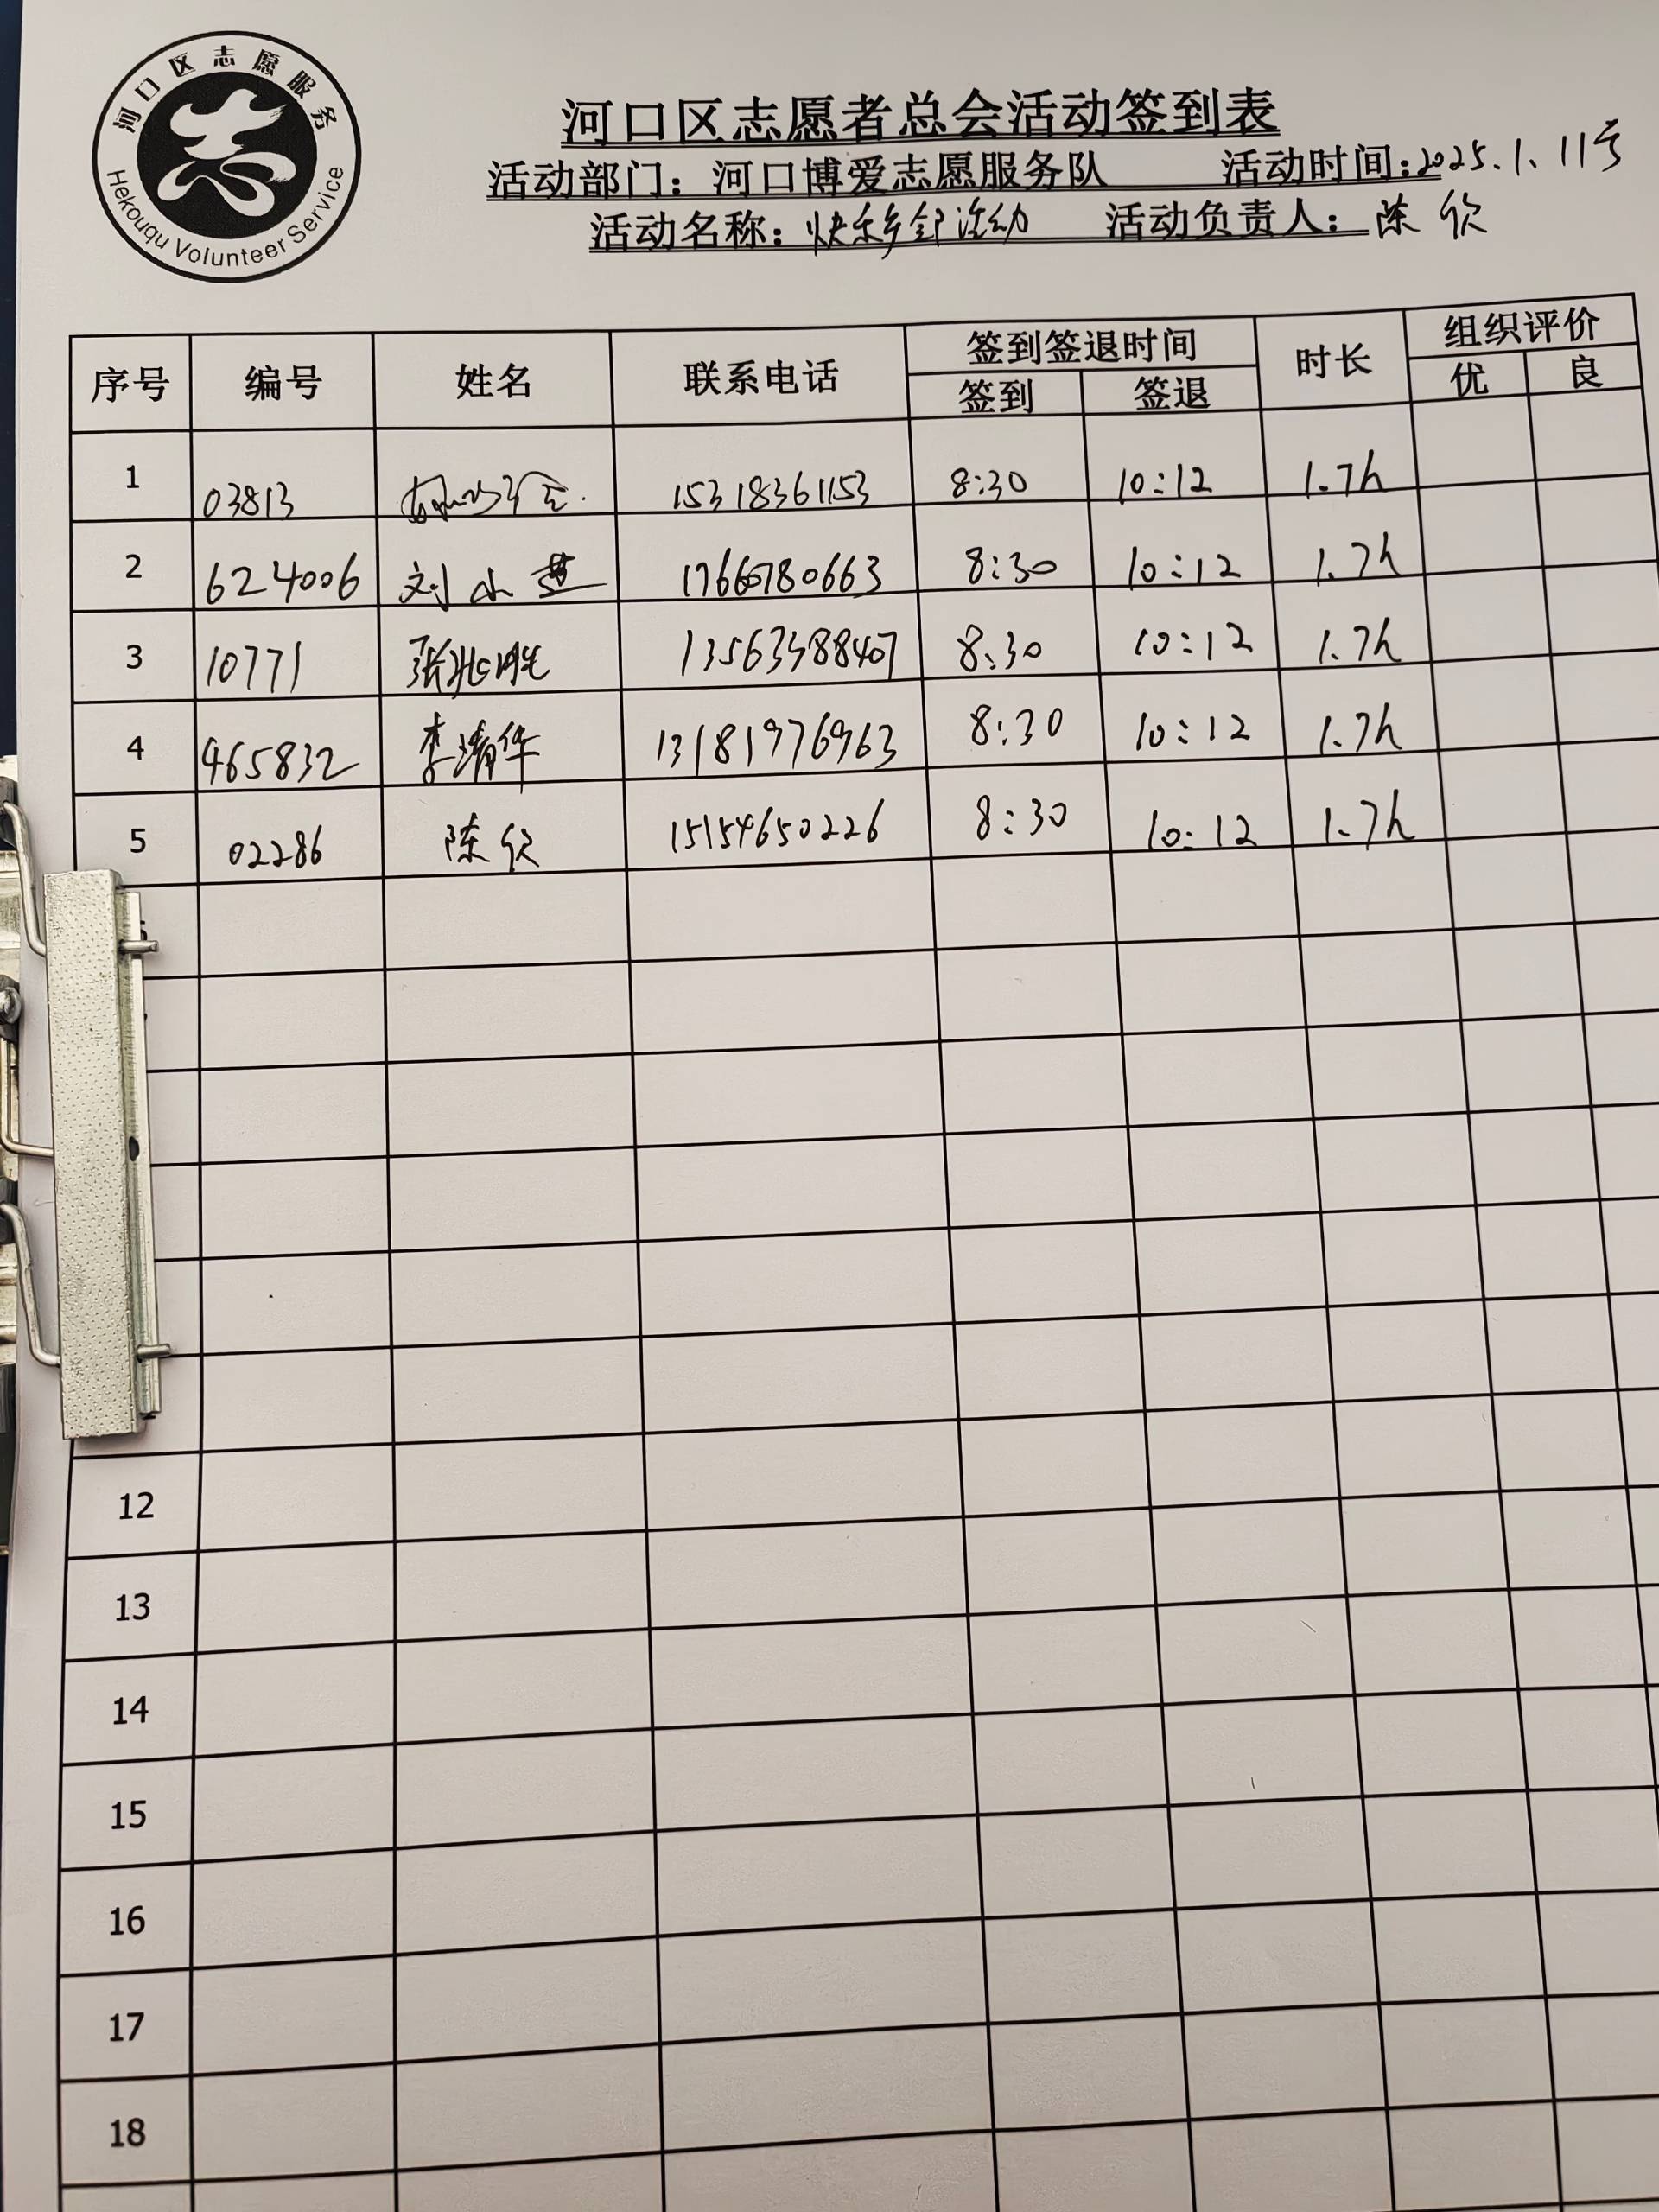 河口区志愿服务
Hekouqu Volunteer Service
河口区志愿者总会活动签到表
活动部门：河口博爱志愿服务队 活动时间：2025.1.11号
活动名称：快乐乡邻活动 活动负责人：陈欣
序号 编号 姓名 联系电话 签到签退时间 时长 组织评价
签到 签退 优 良
1 03813 15318361153 8:30 10:12 1.7h
2 624006 刘小燕 17660780663 8:30 10:12 1.7h
3 10771 张 13563588407 8:30 10:12 1.7h
4 465832 李清华 13181976963 8:30 10:12 1.7h
5 02286 陈欣 15154650226 8:30 10:12 1.7h
12
13
14
15
16
17
18